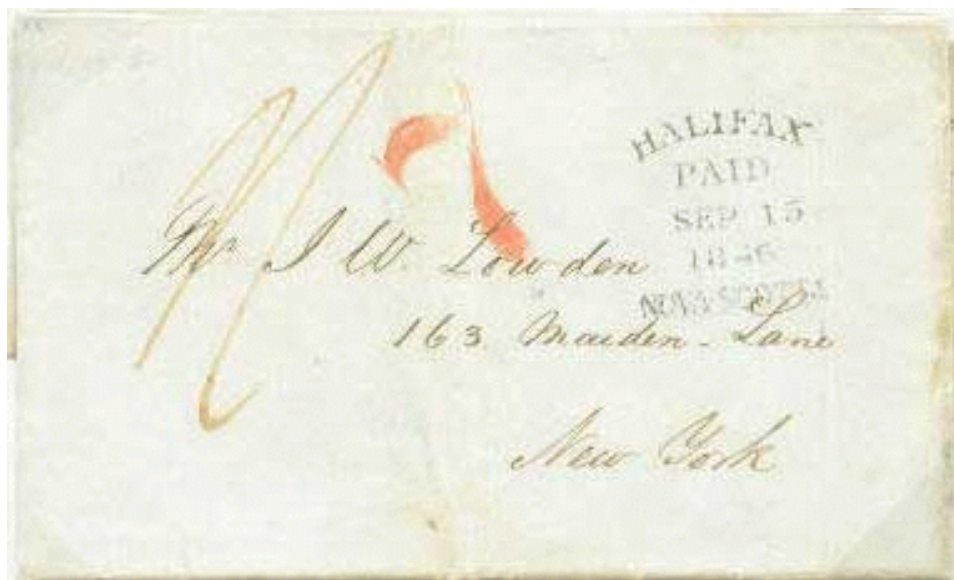 HALIFAX
PAID
SEP 15
1846
NOVA SCOTIA
Mr. J W. Lowden
163 Maiden - Lane
New York